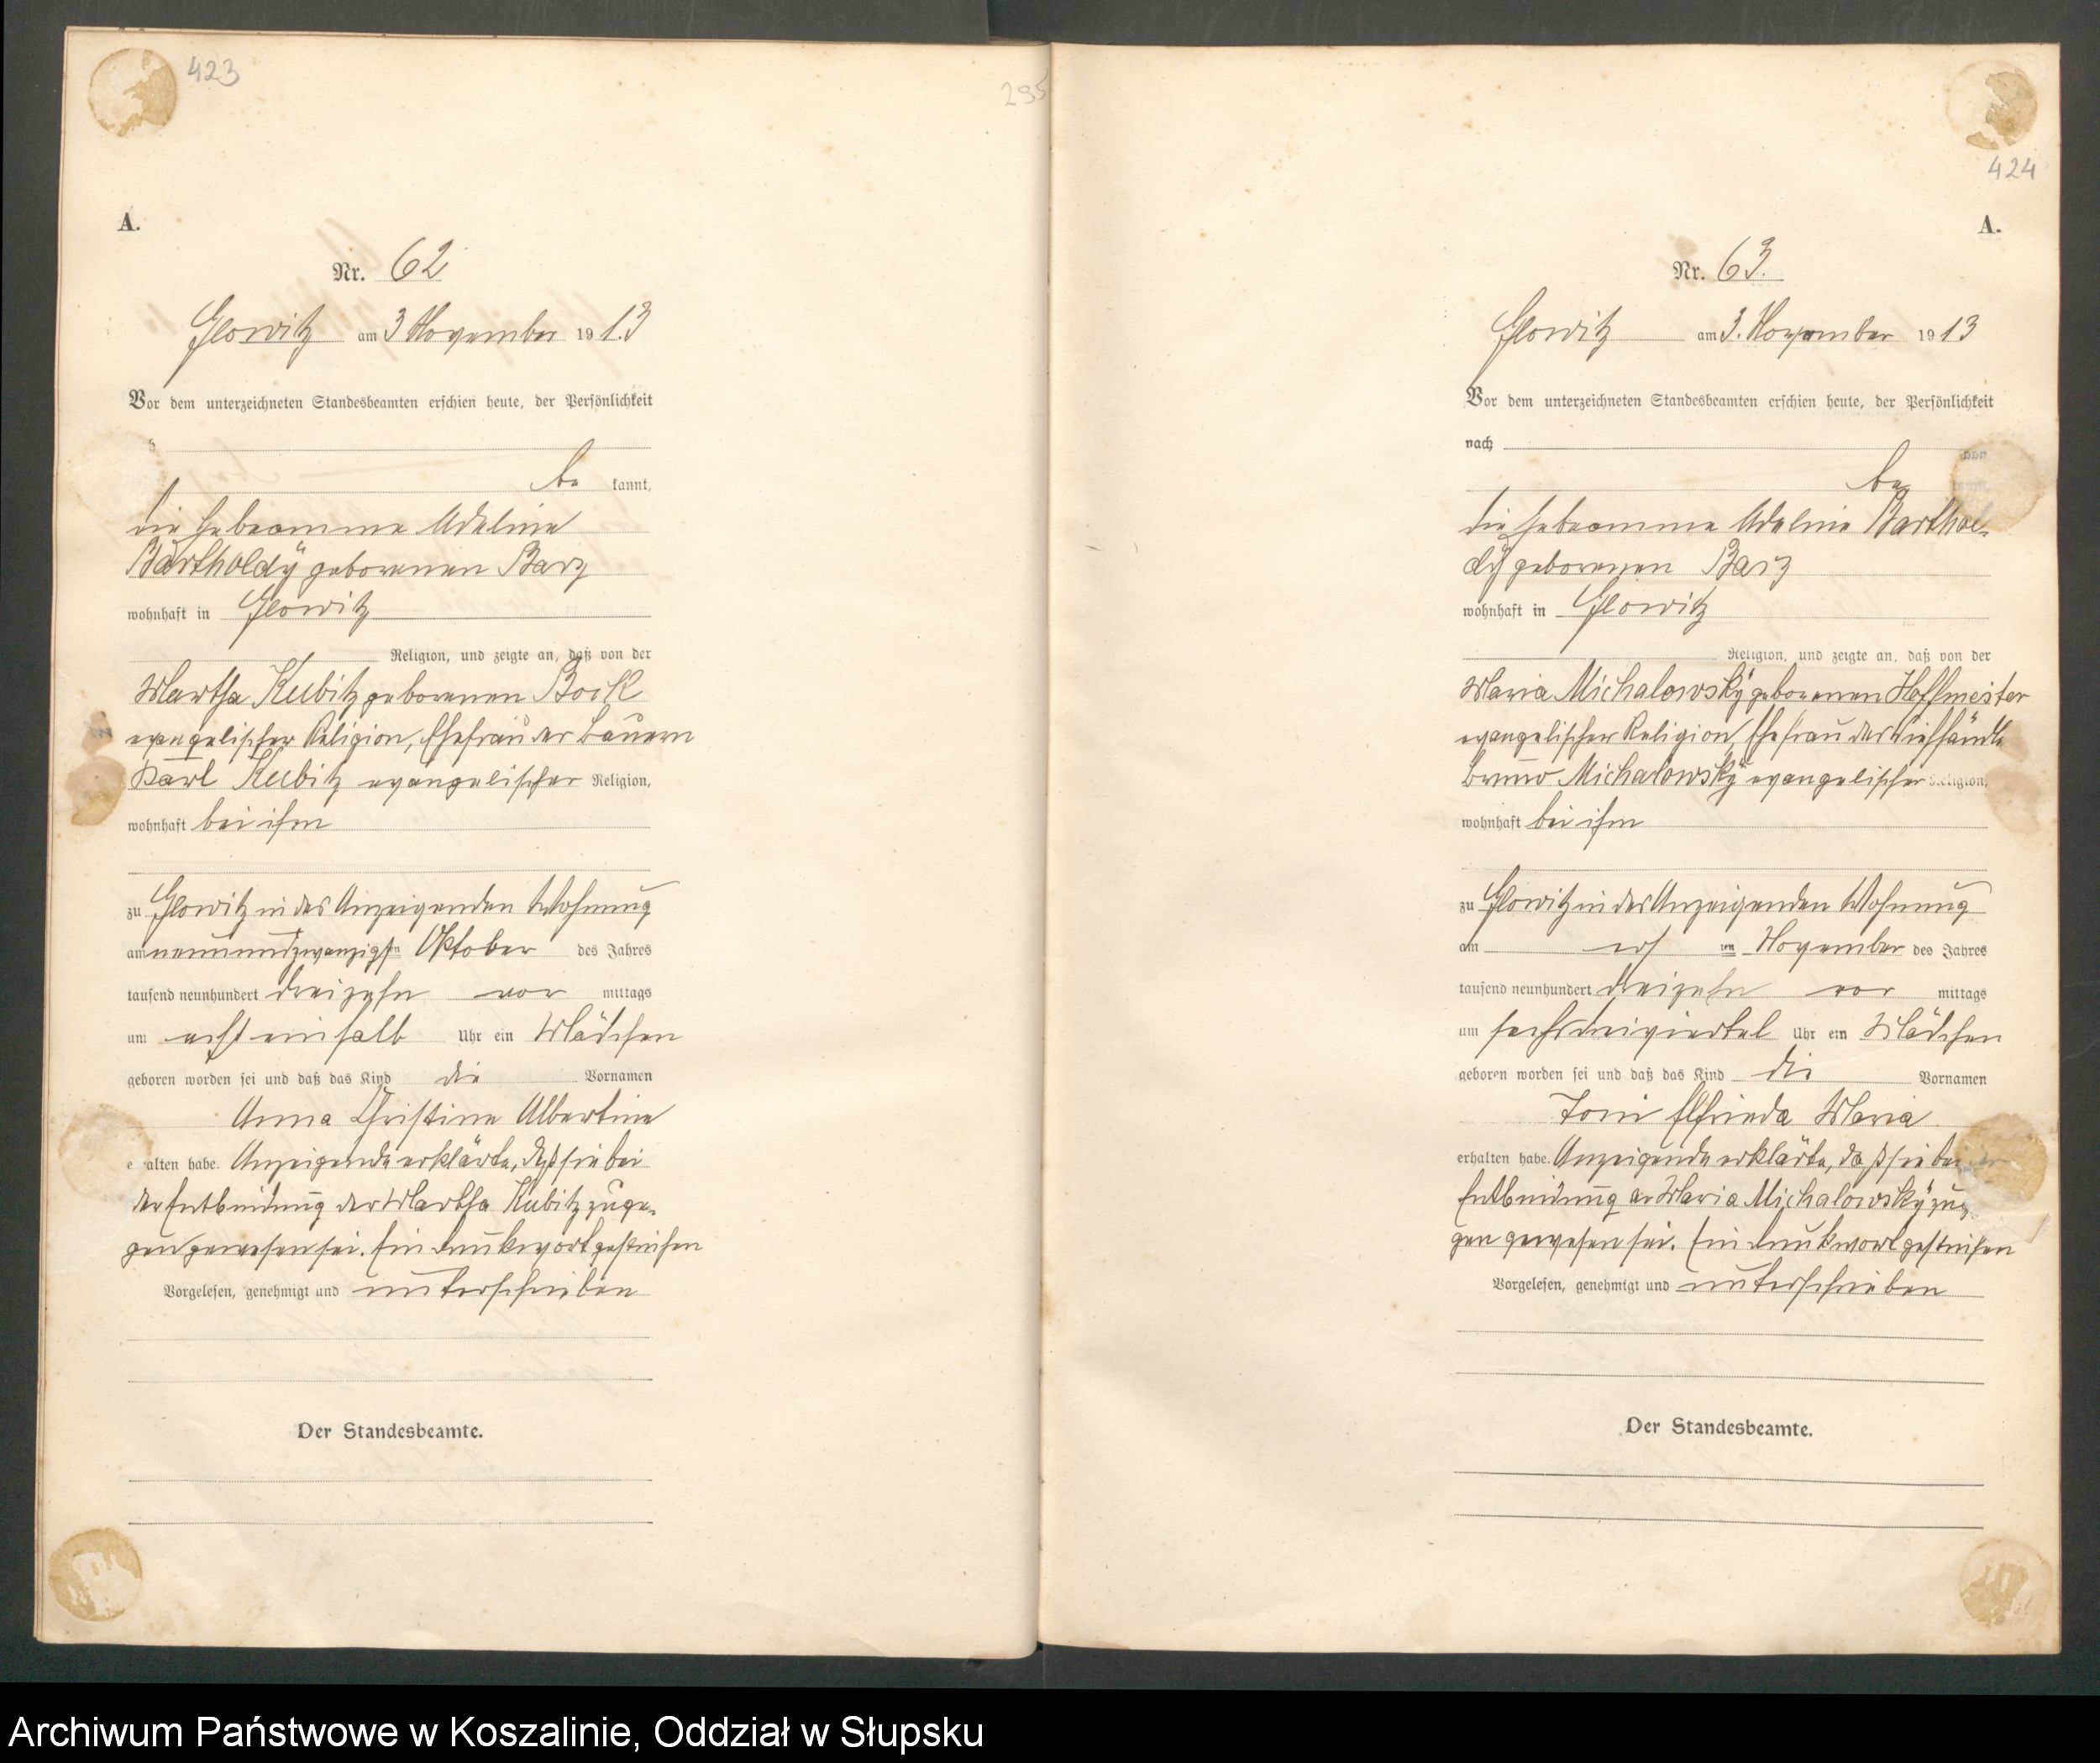 423
295
A.
Nr. 62
Glowitz am 3 November 1913
Vor dem unterzeichneten Standesbeamten erschien heute, der Persönlichkeit
be kannt,
die Hebeamme Adeline
Bartholdÿ geborenen Barz
wohnhaft in Glowitz
Religion, und zeigte an, daß von der
Martha Kubitz geborenen Bock
evangelischer Religion, Ehefrau des Bauern
Karl Kubitz evangelischer Religion,
wohnhaft bei ihm
zu Glowitz in des Anzeigenden Wohnung
am neunundzwanzigsten Oktober des Jahres
tausend neunhundert dreizehn vor mittags
um achteinhalb Uhr ein Mädchen
geboren worden sei und daß das Kind die Vornamen
Anna Christine Albertine
erhalten habe. Anzeigende erklärte, daß sie bei
der Entbindung der Martha Kubitz zuge-
gen gewesen sei. Ein Druckwort gestrichen
Vorgelesen, genehmigt und unterschrieben
Der Standesbeamte.
424
A.
Nr. 63.
Glowitz am 3. November 1913
Vor dem unterzeichneten Standesbeamten erschien heute, der Persönlichkeit
nach
be
die Hebeamme Adeline Barthol-
dÿ geborenen Barz
wohnhaft in Glowitz
Religion, und zeigte an, daß von der
Maria Michalowskÿ geborenen Hoffmeister
evangelischer Religion, Ehefrau des Viehhändle
Bruno Michalowskÿ evangelischer Religion,
wohnhaft bei ihm
zu Glowitz in des Anzeigenden Wohnung
am ersten November des Jahres
tausend neunhundert dreizehn vor mittags
um sechsdreiviertel Uhr ein Mädchen
geboren worden sei und daß das Kind die Vornamen
Toni Elfrieda Maria
erhalten habe. Anzeigende erklärte, daß sie bei der
Entbindung der Maria Michalowskÿ zuge-
gen gewesen sei. Ein Druckwort gestrichen
Vorgelesen, genehmigt und unterschrieben
Der Standesbeamte.
Archiwum Państwowe w Koszalinie, Oddział w Słupsku